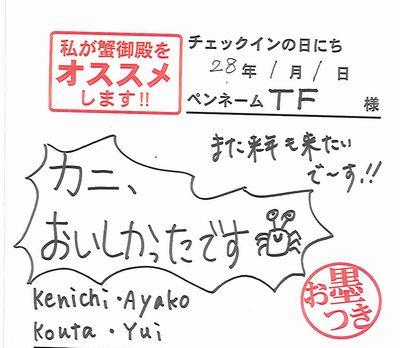 私が蟹御殿を
オススメ
します!!
チェックインの日にち
28年1月1日
ペンネームTF様
また来年も来たい
で〜す!!
カニ、
おいしかったです
Kenichi・Ayako
Kouta・Yui
お墨つき